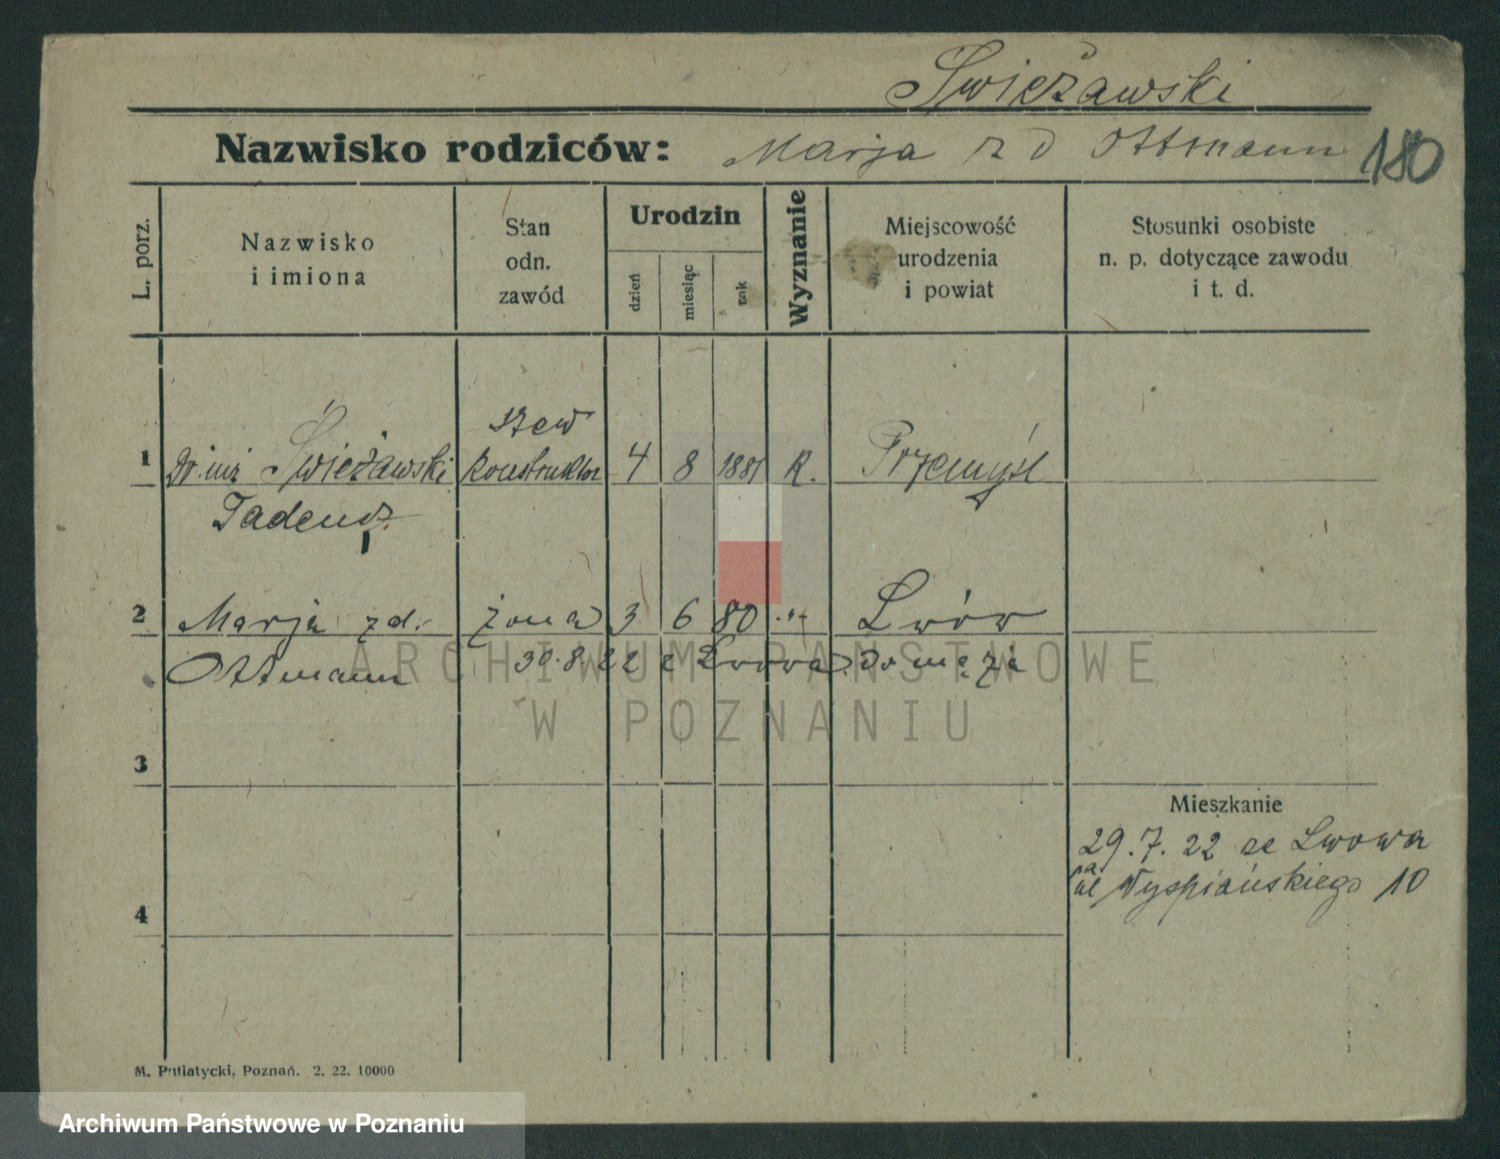 Świeżawski
Nazwisko rodziców: Marja z d Ottmann 180
L. porz.
Nazwisko
i imiona
Stan
odn.
zawód
Urodzin
dzień
miesiąc
rok
Wyznanie
Miejscowość
urodzenia
i powiat
Stosunki osobiste
n. p. dotyczące zawodu
i t. d.
1 Dr. inż Świeżawski
Tadeusz
szew
konstruktor
4 8 1881 R. Przemyśl
2 Marja z d. żona 3 6 80 -"- Lwów
Ottmann 30.8.22 z Lwowa do męża
3
Mieszkanie
29.7.22 ze Lwowa
na
ul Wyspiańskiego 10
4
M. Putiatycki, Poznań. 2. 22. 10000
ARCHIWUM PAŃSTWOWE
W POZNANIU
Archiwum Państwowe w Poznaniu